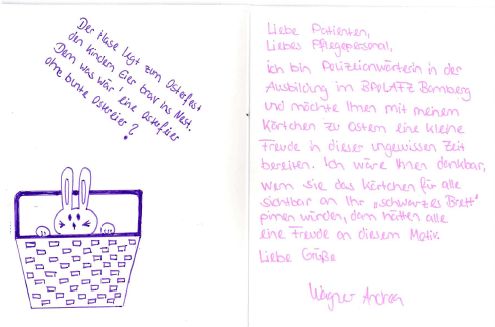 Der Hase legt zum Osterfest
den Kindern Eier brav ins Nest.
Denn was wär' eine Osterfeier
ohne bunte Ostereier?
Liebe Patienten,
Liebes Pflegepersonal,
ich bin Polizeianwärterin in der
Ausbildung im BPOLAFZ Bamberg
und möchte Ihnen mit meinem
Kärtchen zu Ostern eine kleine
Freude in dieser ungewissen Zeit
bereiten. Ich wäre Ihnen dankbar,
wenn sie das Kärtchen für alle
sichtbar an Ihr „schwarzes Brett"
pinnen würden, dann hätten alle
eine Freude an diesem Motiv.
Liebe Grüße
Wagner Andrea